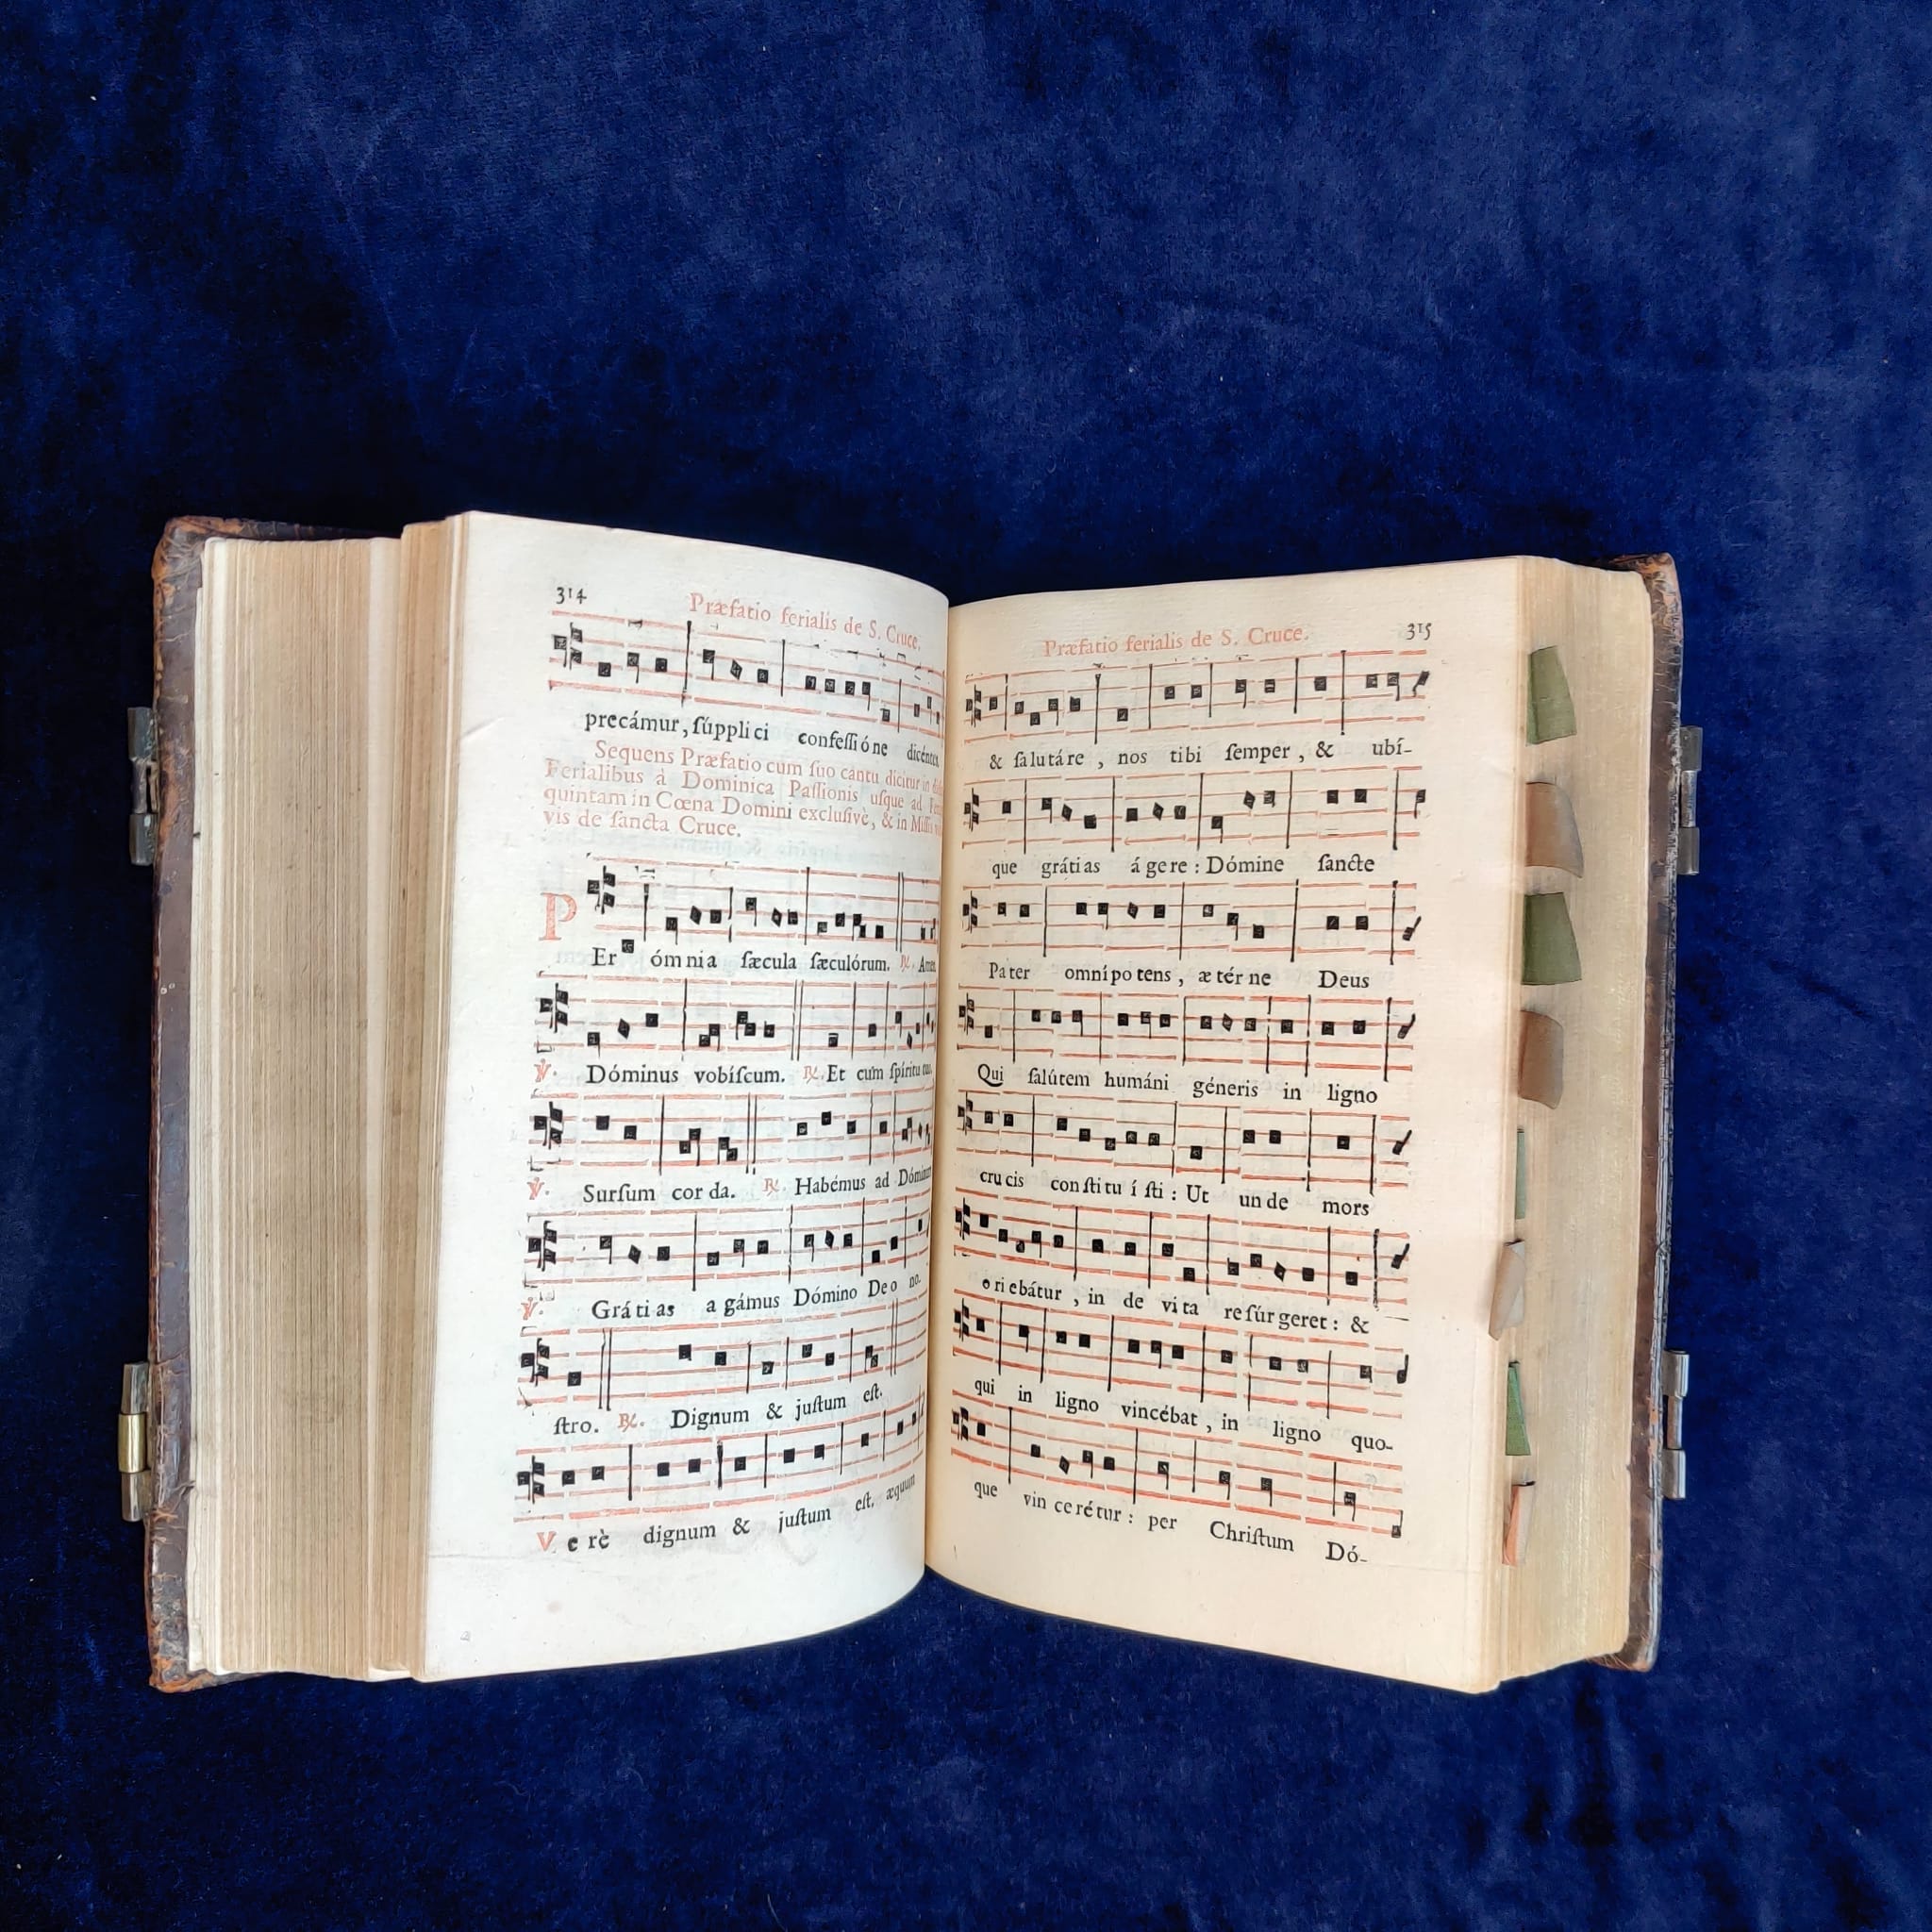 314
Præfatio ferialis de S. Cruce.
precámur, ſúppli ci confeſſi ó ne
Sequens Præfatio cum ſuo cantu dicitur in
Ferialibus à Dominica Paſſionis uſque ad
quintam in Cœna Domini exclusivè, & in
vis de ſancta Cruce.
P
Er óm nia ſæcula ſæculórum. ℟. Amen.
℣. Dóminus vobíſcum. ℟. Et cum ſpíritu tuo.
℣. Surſum cor da. ℟. Habémus ad Dóminum
℣. Grá ti as a gámus Dómino De o no.
ſtro. ℟. Dignum & juſtum eſt.
V e rè dignum & juſtum eſt, æquum
Præfatio ferialis de S. Cruce.
315
& ſalutáre , nos tibi ſemper , & ubí-
que gráti as á ge re : Dómine ſancte
Pa ter omní po tens , æ tér ne Deus
Qui ſalútem humáni géneris in ligno
cru cis con ſti tu í ſti : Ut un de mors
o ri e bátur , in de vi ta re ſúr geret : &
qui in ligno vincébat , in ligno quo-
que vin ce ré tur : per Chriſtum Dó-